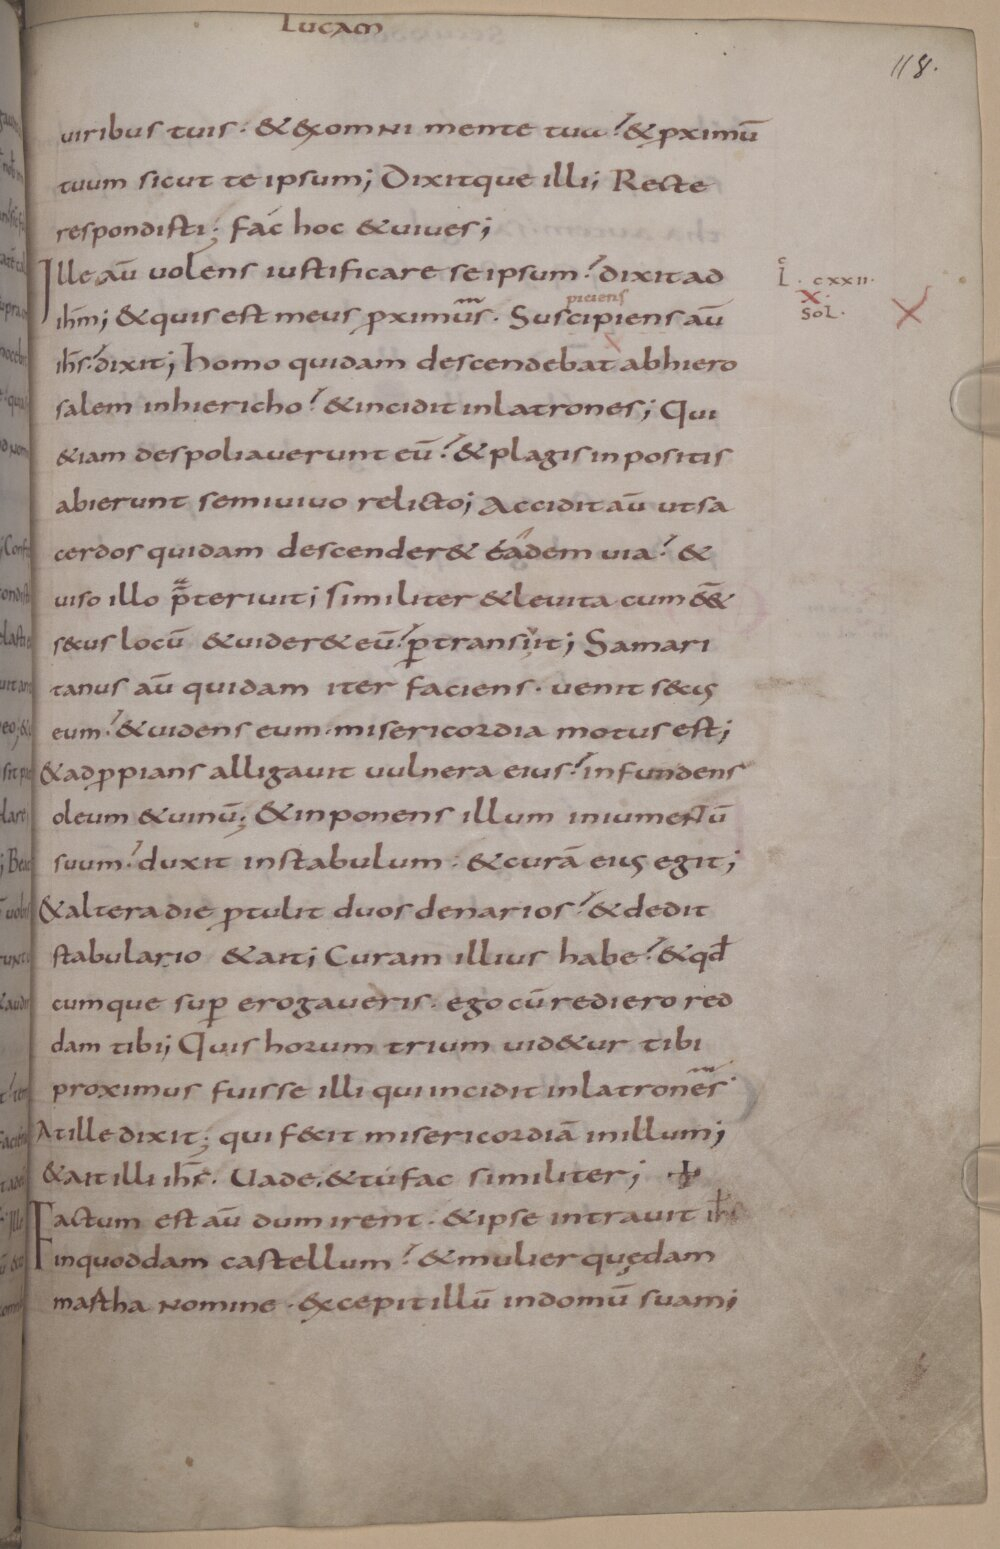 Lucam
118.
uiribus tuis · & exomni mente tua? & pximū
tuum sicut te ipsum; Dixitque illi; Recte
respondisti; fác hoc & uiues;
Ille aū uolens iustificare seipsum? dixit ad
L̊ · cxxii ·
ihm̄; & quis est meus pximus · Suscipiens aū
piciens
x ·
Sol ·
ihs̄? dixit; homo quidam descendebat abhiero
salem inhiericho? & incidit inlatrones; Qui
&iam despoliauerunt eū? & plagis inpositis
abierunt semiuiuo relicto; Accidit aū utsa
cerdos quidam descender& eâdem uia? &
uiso illo p̄teriuit; similiter & leuita cum e͞e&
secus locū & uider& eū? ptransiit; Samari
tanus aū quidam iter faciens · uenit secus
eum? & uidens eum · misericordia motus est;
& adppians alligauit uulnera eius? infundens
oleum & uinū; & inponens illum iniumentū
suum? duxit instabulum · & curā eius egit;
& altera die ptulit duos denarios? & dedit
stabulario & ait; Curam illius habe? & qđ
cumque sup erogaueris · ego cū rediero red
dam tibi; Quis horum trium uid&ur tibi
proximus fuisse illi qui incidit inlatrones
At ille dixit; qui fecit misericordiā inillum;
& ait illi ihs̄ · Uade, & tú fac similiter;
Factum est aū dum irent · & ipse intrauit ihs̄
inquoddam castellum? & mulier quędam
martha nomine · excepit illū indomū suam;